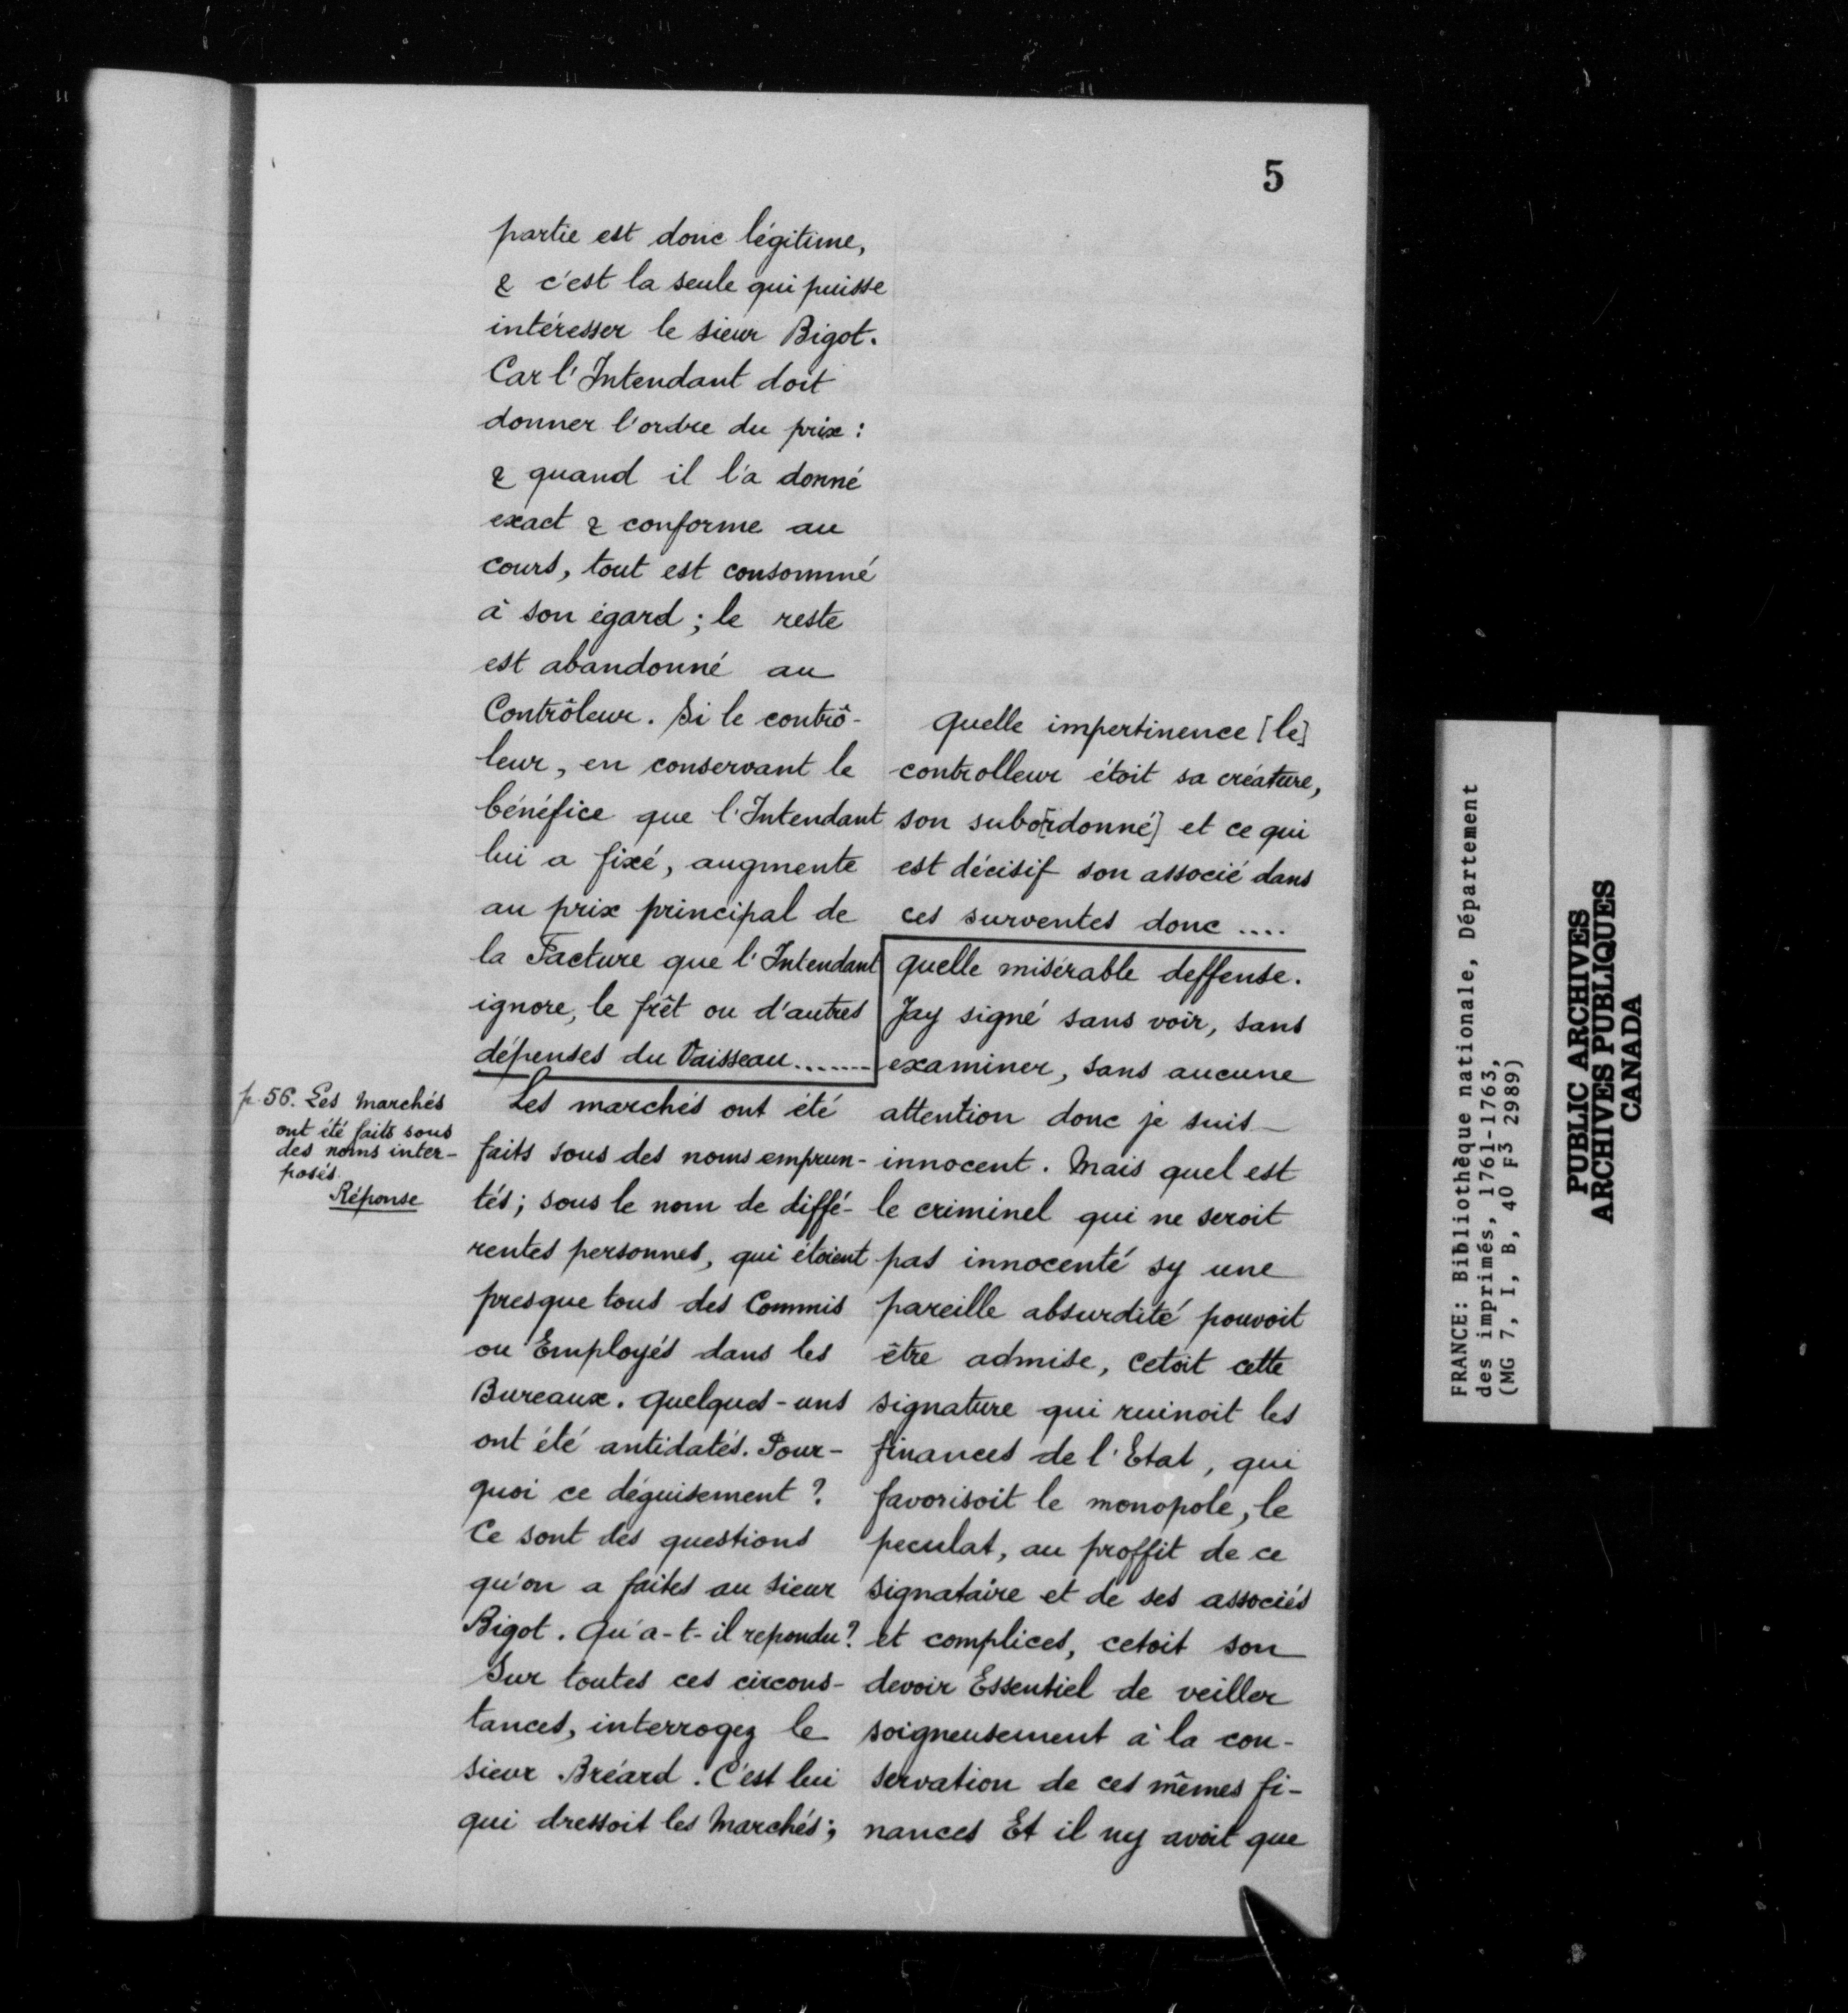 5
partie est donc légitime,
& c'est la seule qui puisse
intéresser le sieur Bigot.
Car l'Intendant doit
donner l'ordre du prix :
& quand il l'a donné
exact & conforme au
cours, tout est consommé
à son égard ; le reste
est abandonné au
Contrôleur. Si le contrô-
leur, en conservant le
bénéfice que l'Intendant
lui a fixé, augmente
au prix principal de
la Facture que l'Intendant
ignore, le frêt ou d'autres
dépenses du Vaisseau.......
p. 56. Les Marchés
ont été faits sous
des noms inter-
posés.
Réponse
Les marchés ont été
faits sous des noms emprun-
tés ; sous le nom de diffé-
rentes personnes, qui étoient
presque tous des Commis
ou Employés dans les
Bureaux. Quelques-uns
ont été antidatés. Pour-
quoi ce déguisement ?
Ce sont des questions
qu'on a faites au sieur
Bigot. Qu'a-t-il repondu ?
Sur toutes ces circons-
tances, interrogez le
sieur Bréard. C'est lui
qui dressoit les Marchés ;
Quelle impertinence [le]
controlleur étoit sa créature,
son subo[rdonné] et ce qui
est décisif son associé dans
ces surventes donc ....
quelle misérable deffense.
Jay signé sans voir, sans
examiner, sans aucune
attention donc je suis
innocent. Mais quel est
le criminel qui ne seroit
pas innocenté sy une
pareille absurdité pouvoit
être admise, cetoit cette
signature qui ruinoit les
finances de l'Etat, qui
favorisoit le monopole, le
peculat, au proffit de ce
signataire et de ses associés
et complices, cetoit son
devoir Essentiel de veiller
soigneusement à la con-
servation de ces mêmes fi-
nances Et il ny avoit que
FRANCE: Bibliothèque nationale, Département
des imprimés, 1761-1763,
(MG 7, I, B, 40 F3 2989)
PUBLIC ARCHIVES
ARCHIVES PUBLIQUES
CANADA